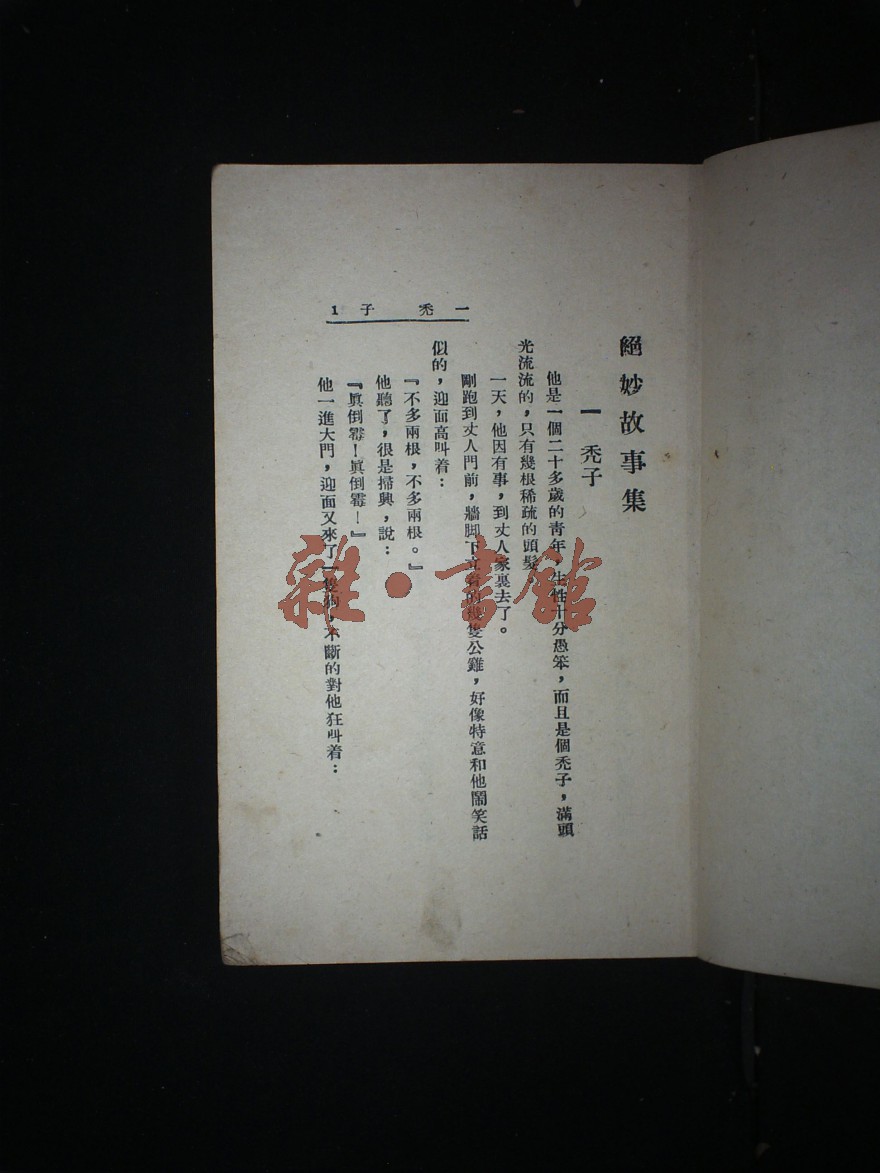 絕妙故事集
一 禿子
他是一個二十多歲的靑年，生性十分愚笨，而且是個禿子，滿頭
光流流的，只有幾根稀疏的頭髮
一天，他因有事，到丈人家裏去了。
剛跑到丈人門前，牆脚下立着的幾隻公雞，好像特意和他鬧笑話
似的，迎面高叫着：
『不多兩根，不多兩根。』
他聽了，很是掃興，說：
『眞倒霉！眞倒霉！』
他一進大門，迎面又來了一隻狗，不斷的對他狂叫着：
一 禿子 1
雜·書館